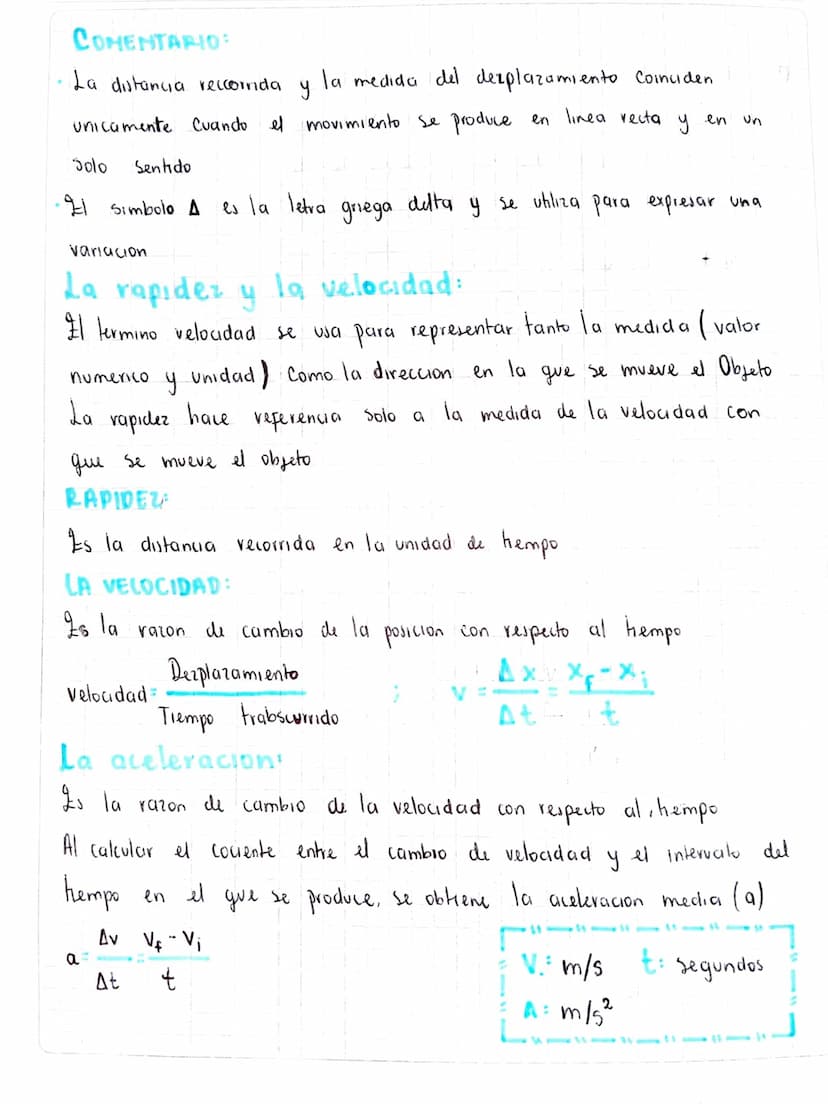 COMENTARIO:
· La distancia recorrida y la medida del dezplazamiento coinciden
unicamente cuando el movimiento se produce en linea recta y en un
solo sentido
· El simbolo Δ es la letra griega delta y se utiliza para expresar una
variacion
La rapidez y la velocidad:
El termino velocidad se usa para representar tanto la medida (valor
numerico y unidad) como la direccion en la que se mueve el Objeto
La rapidez hace referencia solo a la medida de la velocidad con
que se mueve el objeto
RAPIDEZ:
Es la distancia recorrida en la unidad de tiempo
LA VELOCIDAD:
Es la razon de cambio de la posicion con respecto al tiempo
velocidad = Dezplazamiento / Tiempo trabscurrido ; v = Δx / Δt = xf - xi / t
La aceleracion:
Es la razon de cambio de la velocidad con respecto al tiempo
Al calcular el cociente entre el cambio de velocidad y el intervalo del
tiempo en el que se produce, se obtiene la aceleracion media (a)
a = Δv / Δt = Vf - Vi / t
V: m/s t: segundos
A: m/s²